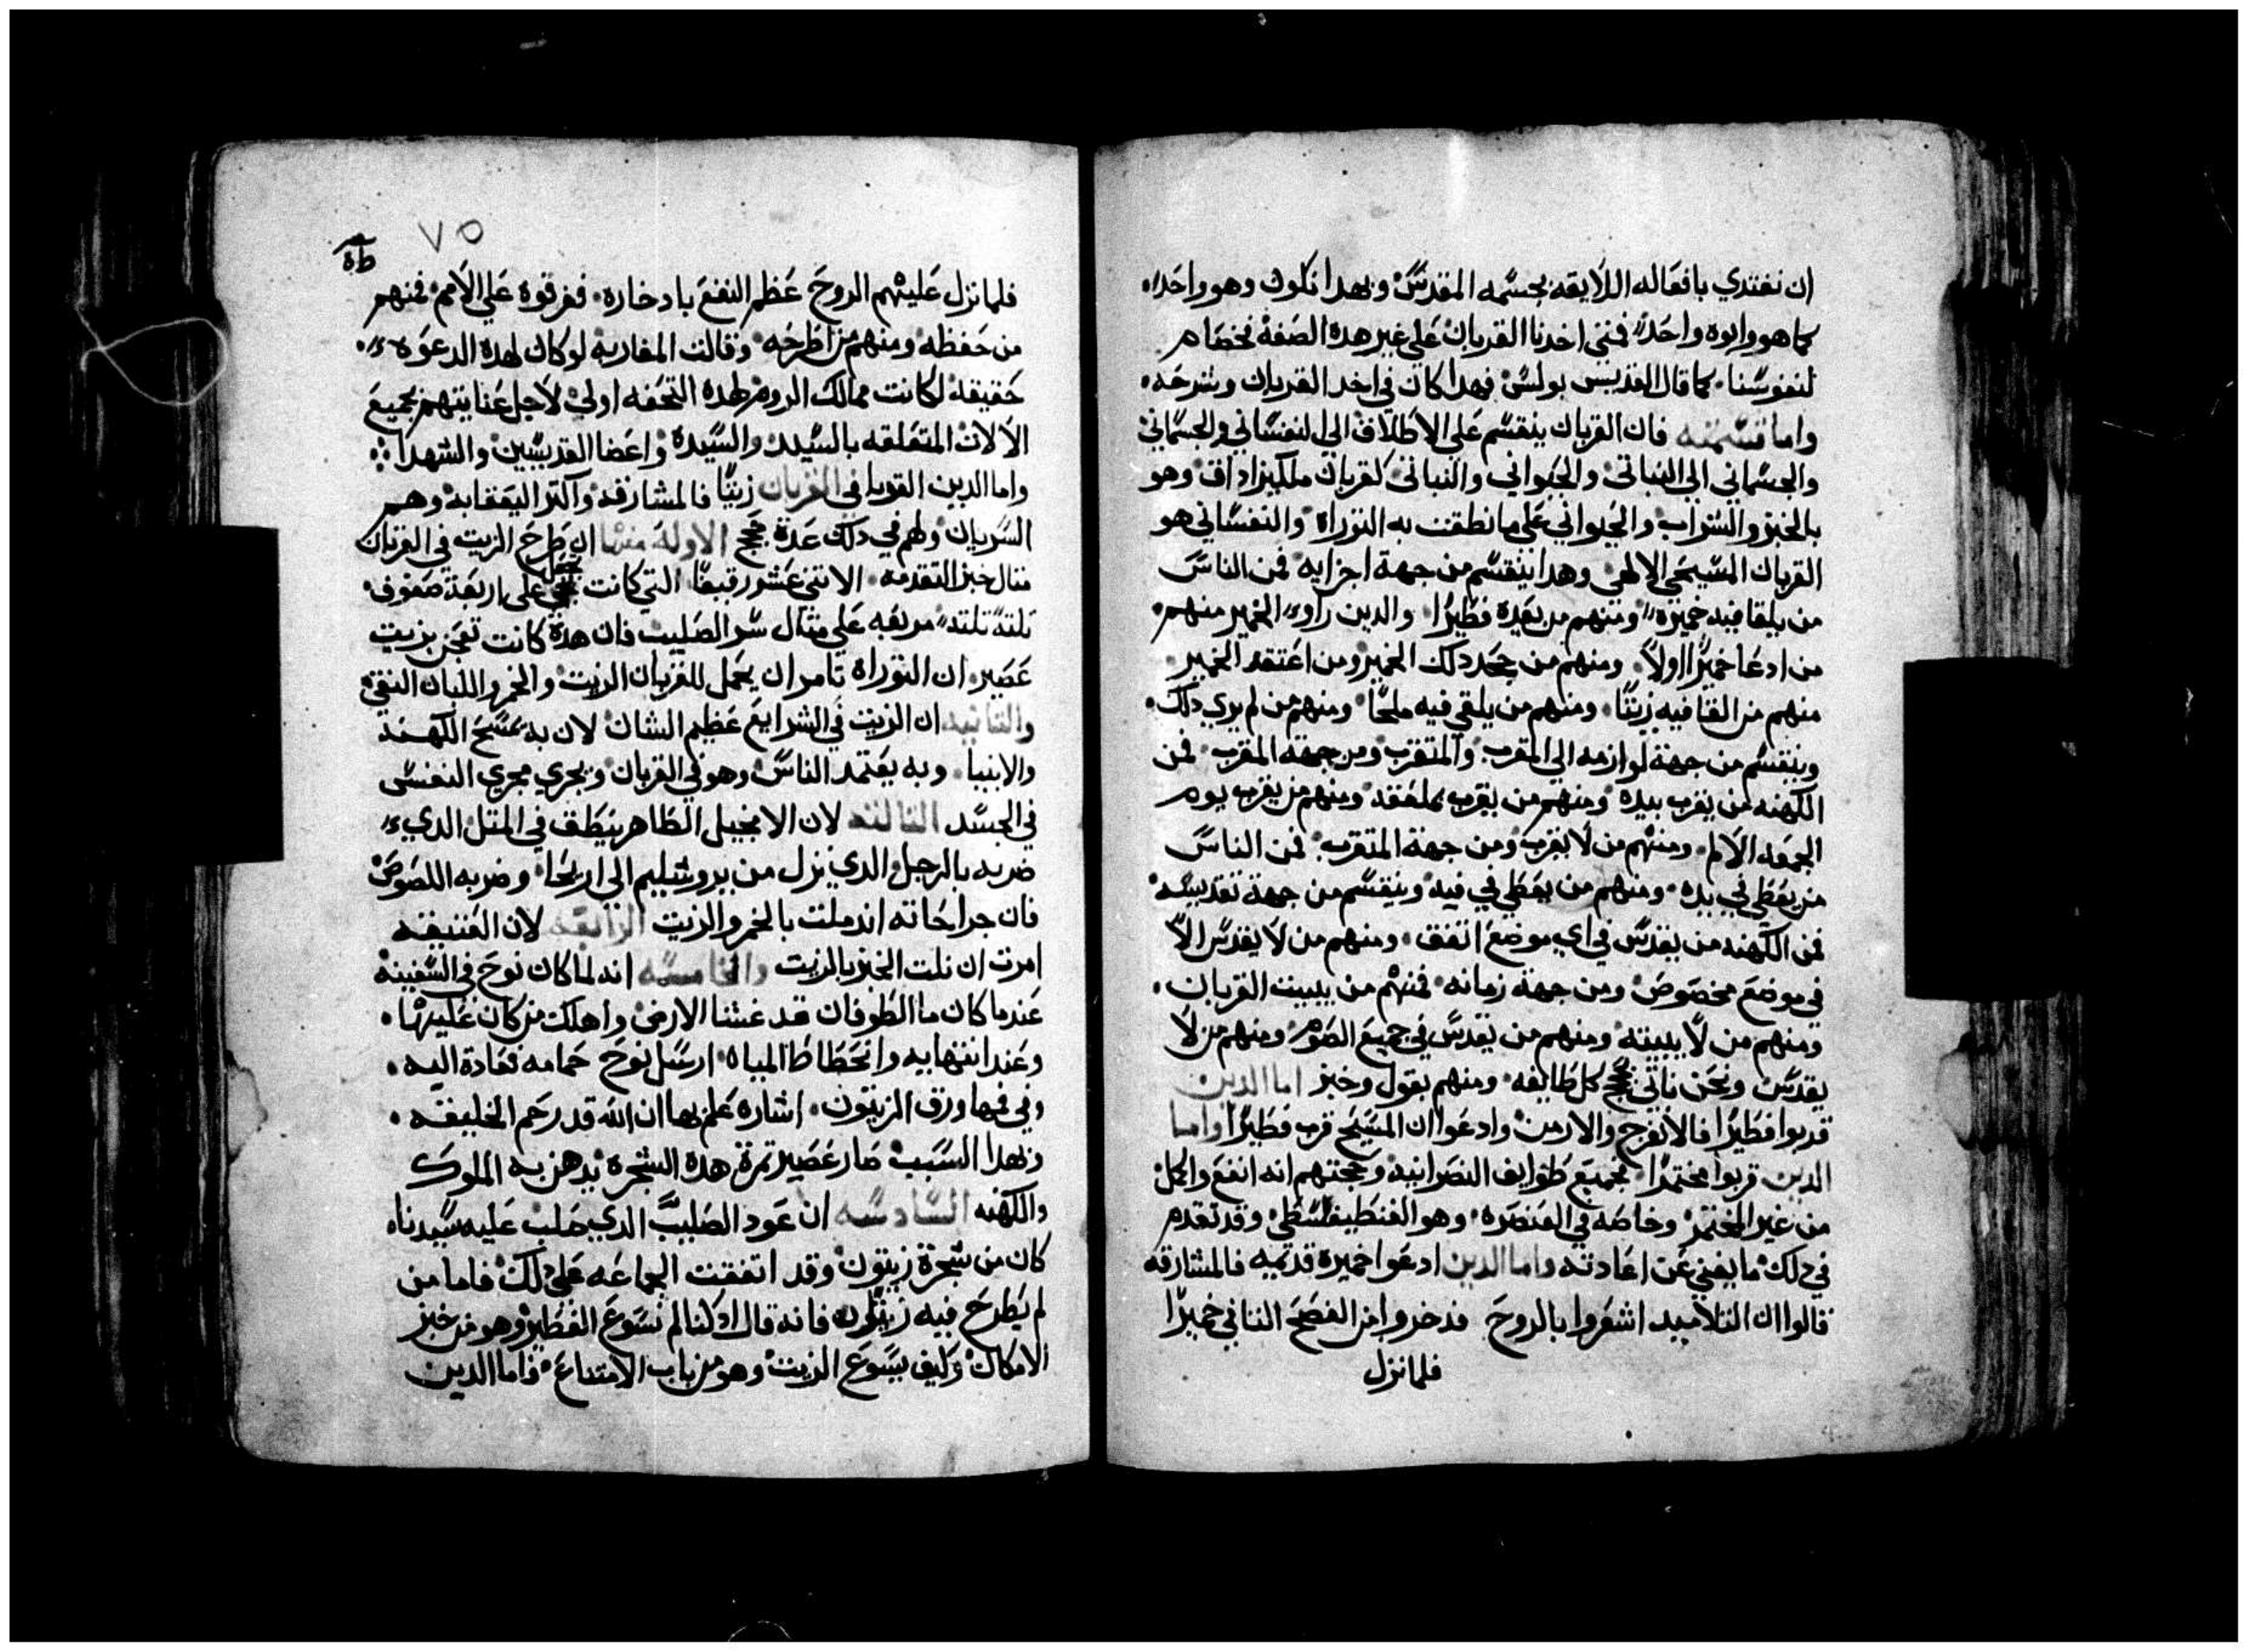 ان نفتدي بافعاله اللايقه بجسمه المقدس وبهدا نكون وهو واحدا
كما هو وابوه واحد فمتى اخدنا القربان على غير هده الصفه فخصام
لنفوسنا كما قال القديس بولس فهدا كان في اخد القربان وشرحه
واما قسمته فان القربان ينقسم على الاطلاق الى النفساني والجسماني
والجسماني الى النباتي والحيواني والنباتي كقربان ملكيزاداق وهو
بالخبز والشراب والحيواني على ما نطقت به التوراة والنفساني هو
القربان المسيحي الالهي وهدا ينقسم من جهة اجزايه فمن الناس
من يلقا فيه خميره ومنهم من يعده فطيرا والدين راوء الخمير منهم
من ادعا خميرا اولا ومنهم من جحد دلك الخمير ومن اعتقد الخمير
منهم من القا فيه زيتا ومنهم من يلقي فيه ملحا ومنهم من لم يرى دلك
وينقسم من جهة لوازمه الى المقرب والمتقرب ومن جهة المقرب فمن
الكهنه من يقرب بيده ومنهم من يقرب بملعقه ومنهم من يقرب يوم
الجمعه الالام ومنهم من لا يقرب ومن جهة المتقرب فمن الناس
من يعطى في يده ومنهم من يعطي في فيه وينقسم من جهة تقديسه
فمن الكهنه من يقدس في اي موضع اتفق ومنهم من لا يقدس الا
في موضع مخصوص ومن جهة زمانه فمنهم من يبيت القربان
ومنهم من لا يبيته ومنهم من يقدس في جميع الصوم ومنهم من لا
يقدس ونحن ناتي بحجج كل طايفه ومنهم بقول وخبز اما الدين
قربوا فطيرا فالافرنج والارمن وادعوا ان المسيح قرب فطيرا واما
الدين قربوا مختمرا فجميع طوايف النصرانيه وحجتهم انه انفع واكل
من غير المختمر وخاصه في العنصره وهو الفنطيقسطي وقد تقدم
في دلك ما يغني عن اعادته واما الدين ادعوا خميره قديمه فالمشارقه
قالوا ان التلاميد اشعروا بالروح فدخروا من الفصح الثاني خميرا
فلما نزل
٧٥
فلما نزل عليهم الروح عظم النفع بادخاره ففرقوه على الامم فمنهم
من حفظه ومنهم من اطرحه وقالت المغاربه لو كان لهده الدعوه
حقيقه لكانت ممالك الروم لهده التحفه اولى لاجل عنايتهم بجميع
الالات المتعلقه بالسيد والسيدة واعضا القديسين والشهدا
واما الدين القوا في القربان زيتا فالمشارقه واكتر اليعقابه وهم
السريان ولهم في دلك عدة حجج الاوله منها ان طرح الزيت في القربان
متال خبز التقدمه الاتنى عشر رقيقا التي كانت تجعل على اربعة صفوف
تلته تلته مربعه على متال سر الصليب فان هدة كانت تعجن بزيت
عصير ان التوراه تامر ان يحمل للقربان الزيت والخمر واللبان النقي
والتانيه ان الزيت في الشرايع عظيم الشان لان به تمسح الكهنة
والانبيا وبه يعتمد الناس وهو في القربان ويجري مجرى النفس
في الجسد التالته لان الانجيل الطاهر ينطق في المتل الدي
ضربه بالرجل الدي نزل من يروشليم الى اريحا وضربه اللصوص
فان جراحاته اندملت بالخمر والزيت الرابعه لان العتيقه
امرت ان تلت الخبز بالزيت والخامسه انه لما كان نوح في السفينه
عندما كان ما الطوفان قد غشا الارض واهلك من كان عليها
وعند انتهايه وانحطاط المياه ارسل نوح حمامه فعادة اليه
وفي فيها ورق الزيتون اشاره علم بها ان الله قد رحم الخليقه
ولهدا السبب صار عصير تمرة هده الشجره يدهن به الملوك
والكهنه السادسه ان عود الصليب الدي صلب عليه سيدنا
كان من شجرة زيتون وقد اتفقت الجماعه على دلك فاما من
لم يطرح فيه فانه قال ادا كنا لم نسوغ الفطير وهو من خبز
الامكان وكيف يسوغ الزيت وهو من باب الامتناع فاما الدين